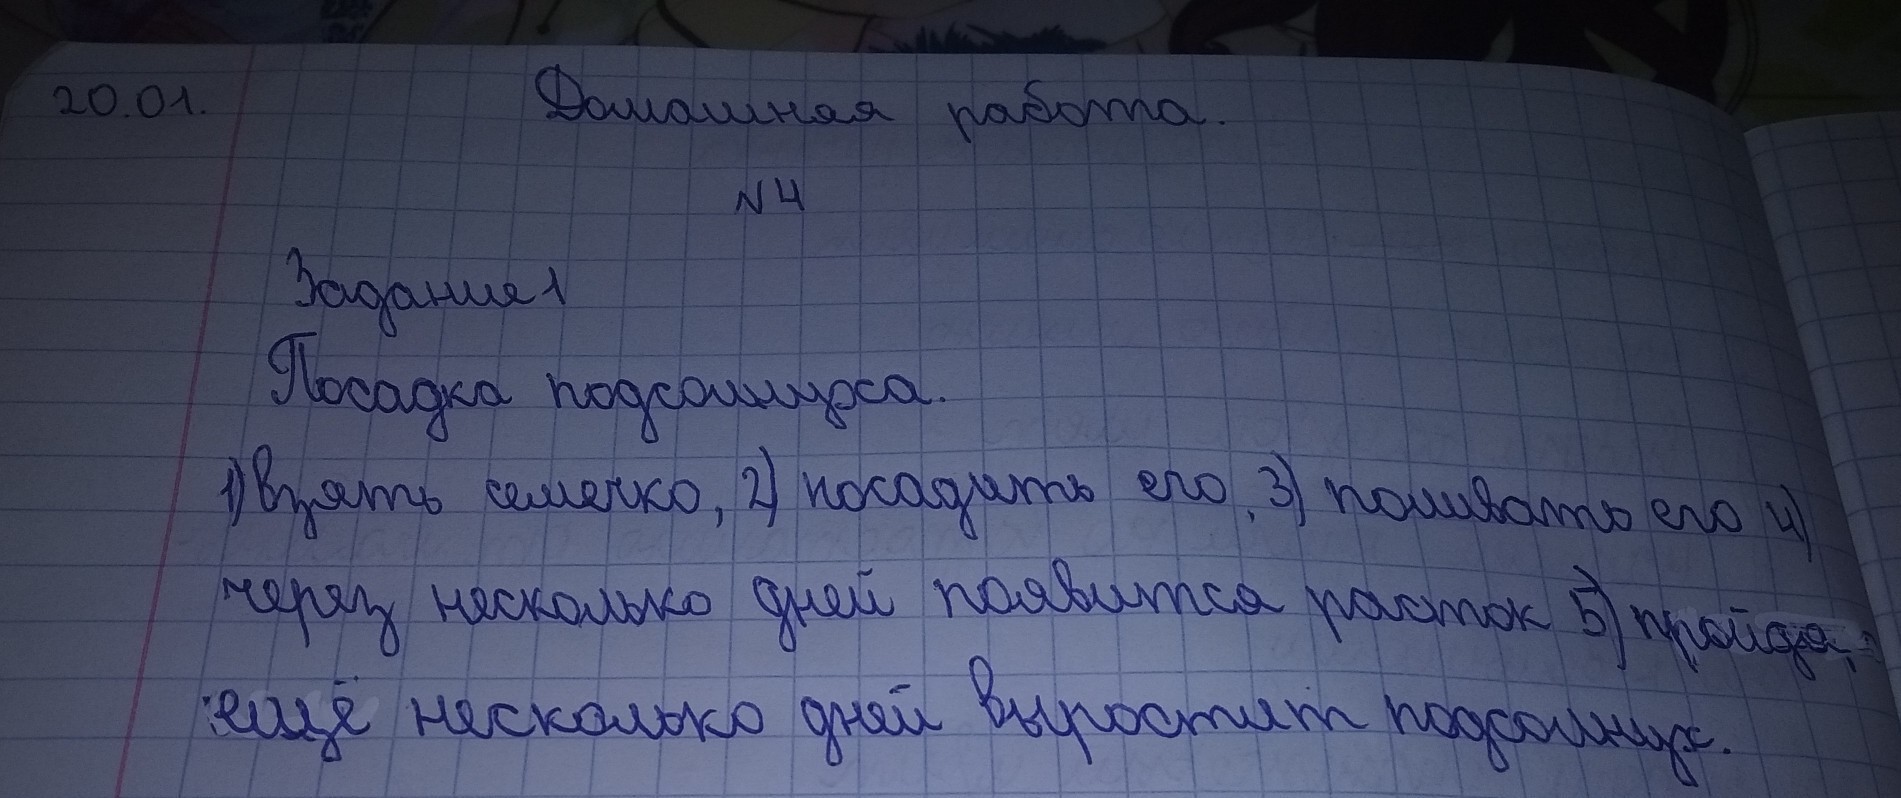 20.01. Домашная работа.
N4
Задание 1
Посадка подсолнуха.
1) Взять семечко, 2) посадить его, 3) поливать его 4)
через несколько дней появится росток 5) пройдя,
ещё несколько дней выростит подсолнух.